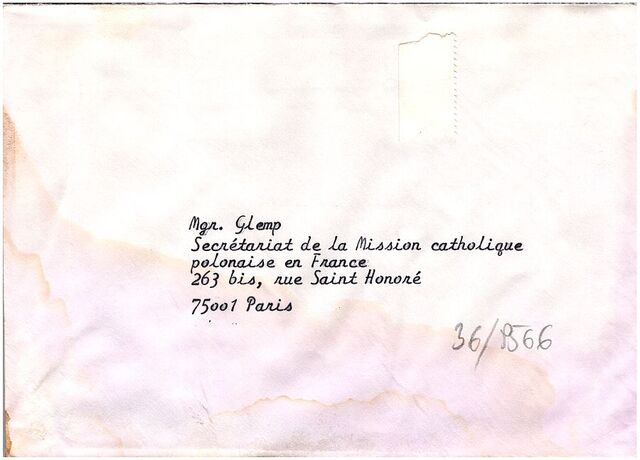 Mgr. Glemp
Secrétariat de la Mission catholique
polonaise en France
263 bis, rue Saint Honoré
75001 Paris
36/9566